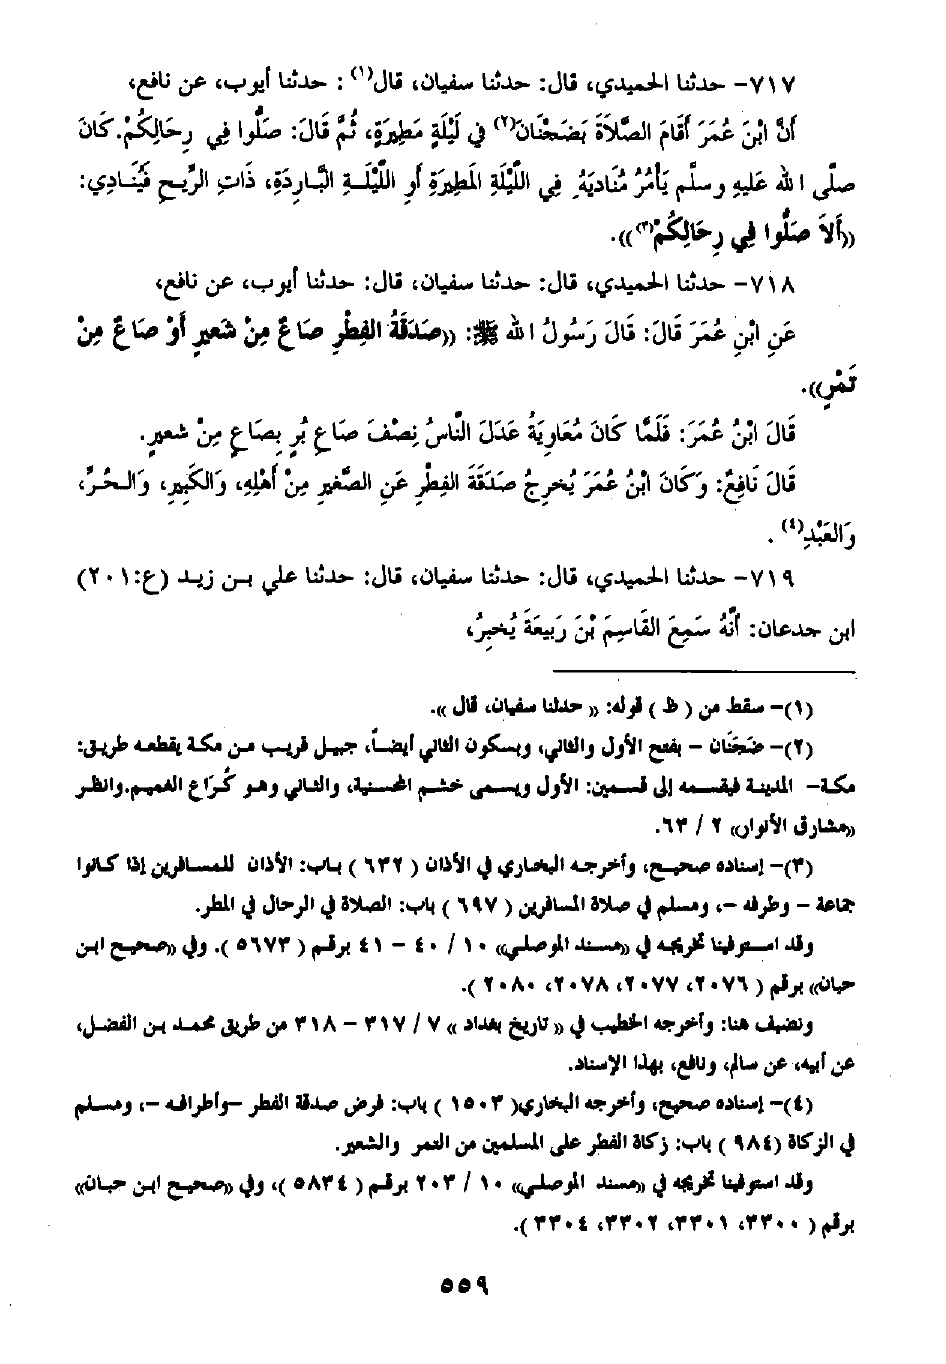 ٧١٧- حدثنا الحميدي، قال: حدثنا سفيان، قال(١) : حدثنا أيوب، عن نافع،
أَنَّ ابْنَ عُمَرَ أَقَامَ الصَّلاَةَ بَضَجْنَانَ(٢) في لَيْلَةٍ مَطِيرَةٍ، ثُمَّ قَالَ: صَلُّوا فِي رِحَالِكُمْ.كَانَ
صلّى الله عَليهِ وسلّم يَأْمُرُ مُنَادِيَهُ فِي اللَّيْلَةِ المَطِيرَةِ أَوِ اللَّيْلَةِ الْبَارِدَةِ، ذَاتِ الرِّيحِ فَيُنَادِي:
((أَلاَ صَلُّوا فِي رِحَالِكُمْ(٣))).
٧١٨- حدثنا الحميدي، قال: حدثنا سفيان، قال: حدثنا أيوب، عن نافع،
عَنِ ابْنِ عُمَرَ قَالَ: قَالَ رَسُولُ الله ﷺ: ((صَدَقَةُ الفِطْرِ صَاعٌ مِنْ شَعيرٍ أَوْ صَاعٌ مِنْ
تَمْرٍ)).
قَالَ ابْنُ عُمَرَ: فَلَمَّا كَانَ مُعَاوِيَةُ عَدَلَ النَّاسُ نِصْفَ صَاعِ بُرٍ بِصَاعٍ مِنْ شعيرٍ.
قَالَ نَافِعٌ: وَكَانَ ابْنُ عُمَرَ يُخرِجُ صَدَقَةَ الفِطْرِ عَنِ الصَّغيرِ مِنْ أَهْلِهِ، وَالكَبِيرِ، وَالـحُرِّ،
وَالعَبْدِ(٤) .
٧١٩- حدثنا الحميدي، قال: حدثنا سفيان، قال: حدثنا علي بن زيد (ع:٢٠١)
ابن جدعان: أَنَّهُ سَمِعَ القَاسِمَ بْنَ رَبِيعَةَ يُخبِرُ،
(١)- سقط من ( ظ ) قوله: (( حدثنا سفيان، قال )).
(٢)- ضَجَنَان - بفتح الأول والثاني، وبسكون الثاني أيضاً، جبيل قريب من مكة يقطعه طريق:
مكة- المدينة فيقسمه إلى قسمين: الأول ويسمى خشم المحسنية، والثاني وهو كُرَاع الغميم.وانظر
((مشارق الأنوار)) ٢ / ٦٣.
(٣)- إسناده صحيح، وأخرجه البخاري في الأذان ( ٦٣٢ ) باب: الأذان للمسافرين إذا كانوا
جماعة - وطرفه -، ومسلم في صلاة المسافرين ( ٦٩٧ ) باب: الصلاة في الرحال في المطر.
وقد استوفينا تخريجه في ((مسند الموصلي)) ١٠ / ٤٠ - ٤١ برقم ( ٥٦٧٣ ). وفي ((صحيح ابن
حبان)) برقم ( ٢٠٧٦، ٢٠٧٧، ٢٠٧٨، ٢٠٨٠ ).
ونضيف هنا: وأخرجه الخطيب في (( تاريخ بغداد )) ٧ / ٣١٧ - ٣١٨ من طريق محمد بن الفضل،
عن أبيه، عن سالم، ونافع، بهذا الإسناد.
(٤)- إسناده صحيح، وأخرجه البخاري( ١٥٠٣ ) باب: فرض صدقة الفطر -وأطرافه -، ومسلم
في الزكاة (٩٨٤ ) باب: زكاة الفطر على المسلمين من التمر والشعير.
وقد استوفينا تخريجه في ((مسند الموصلي)) ١٠ / ٢٠٣ برقم ( ٥٨٣٤ )، وفي ((صحيح ابن حبان))
برقم ( ٣٣٠٠، ٣٣٠١، ٣٣٠٢، ٣٣٠٤ ).
٥٥٩